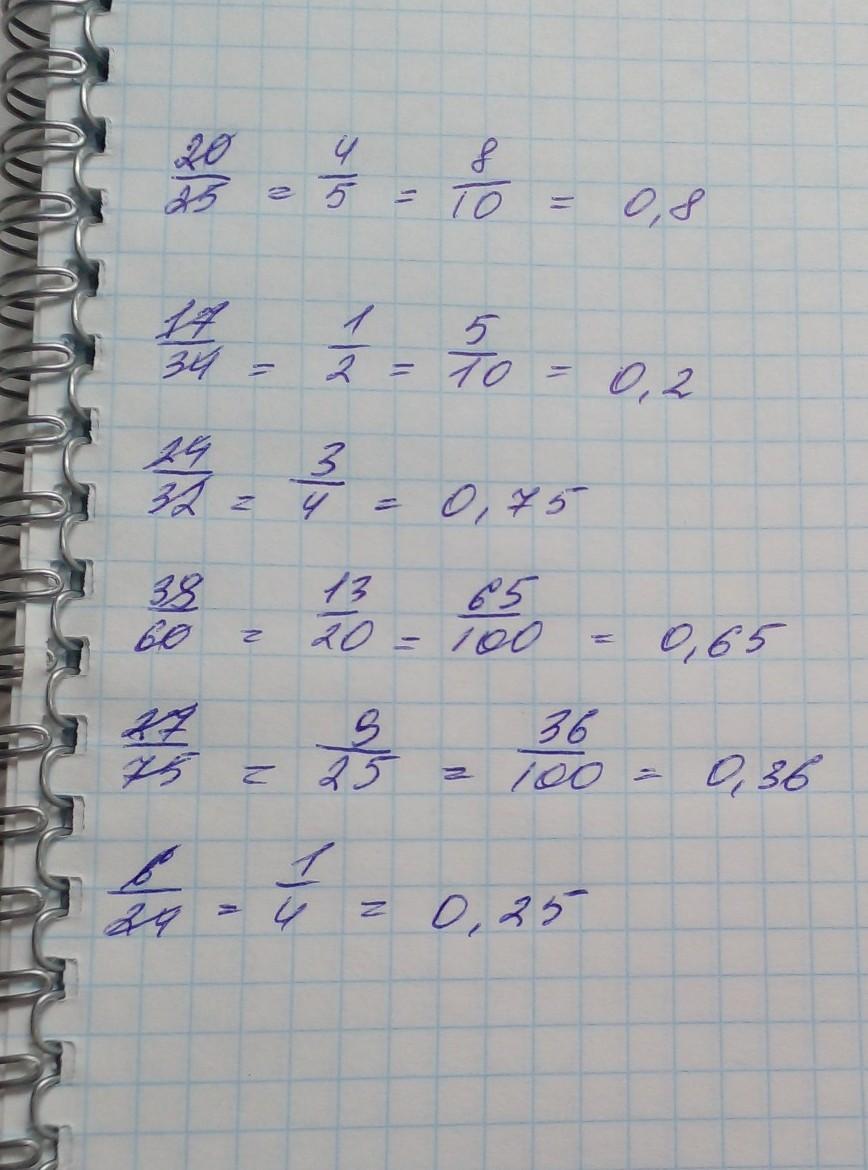 20/25 = 4/5 = 8/10 = 0,8
17/34 = 1/2 = 5/10 = 0,2
24/32 = 3/4 = 0,75
39/60 = 13/20 = 65/100 = 0,65
27/75 = 9/25 = 36/100 = 0,36
6/24 = 1/4 = 0,25